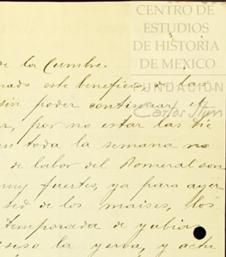 CENTRO DE
ESTUDIOS
DE HISTORIA
DE MÉXICO
FUNDACIÓN
Carlos Slim
de la Cumbre.
este beneficio, de la
sin poder continuar el
por no estar las tie
en toda la semana no
de labor del Romeral son
muy fuertes, ya para ayer
sed de los maices, los
temporada de
la yerba, y actu